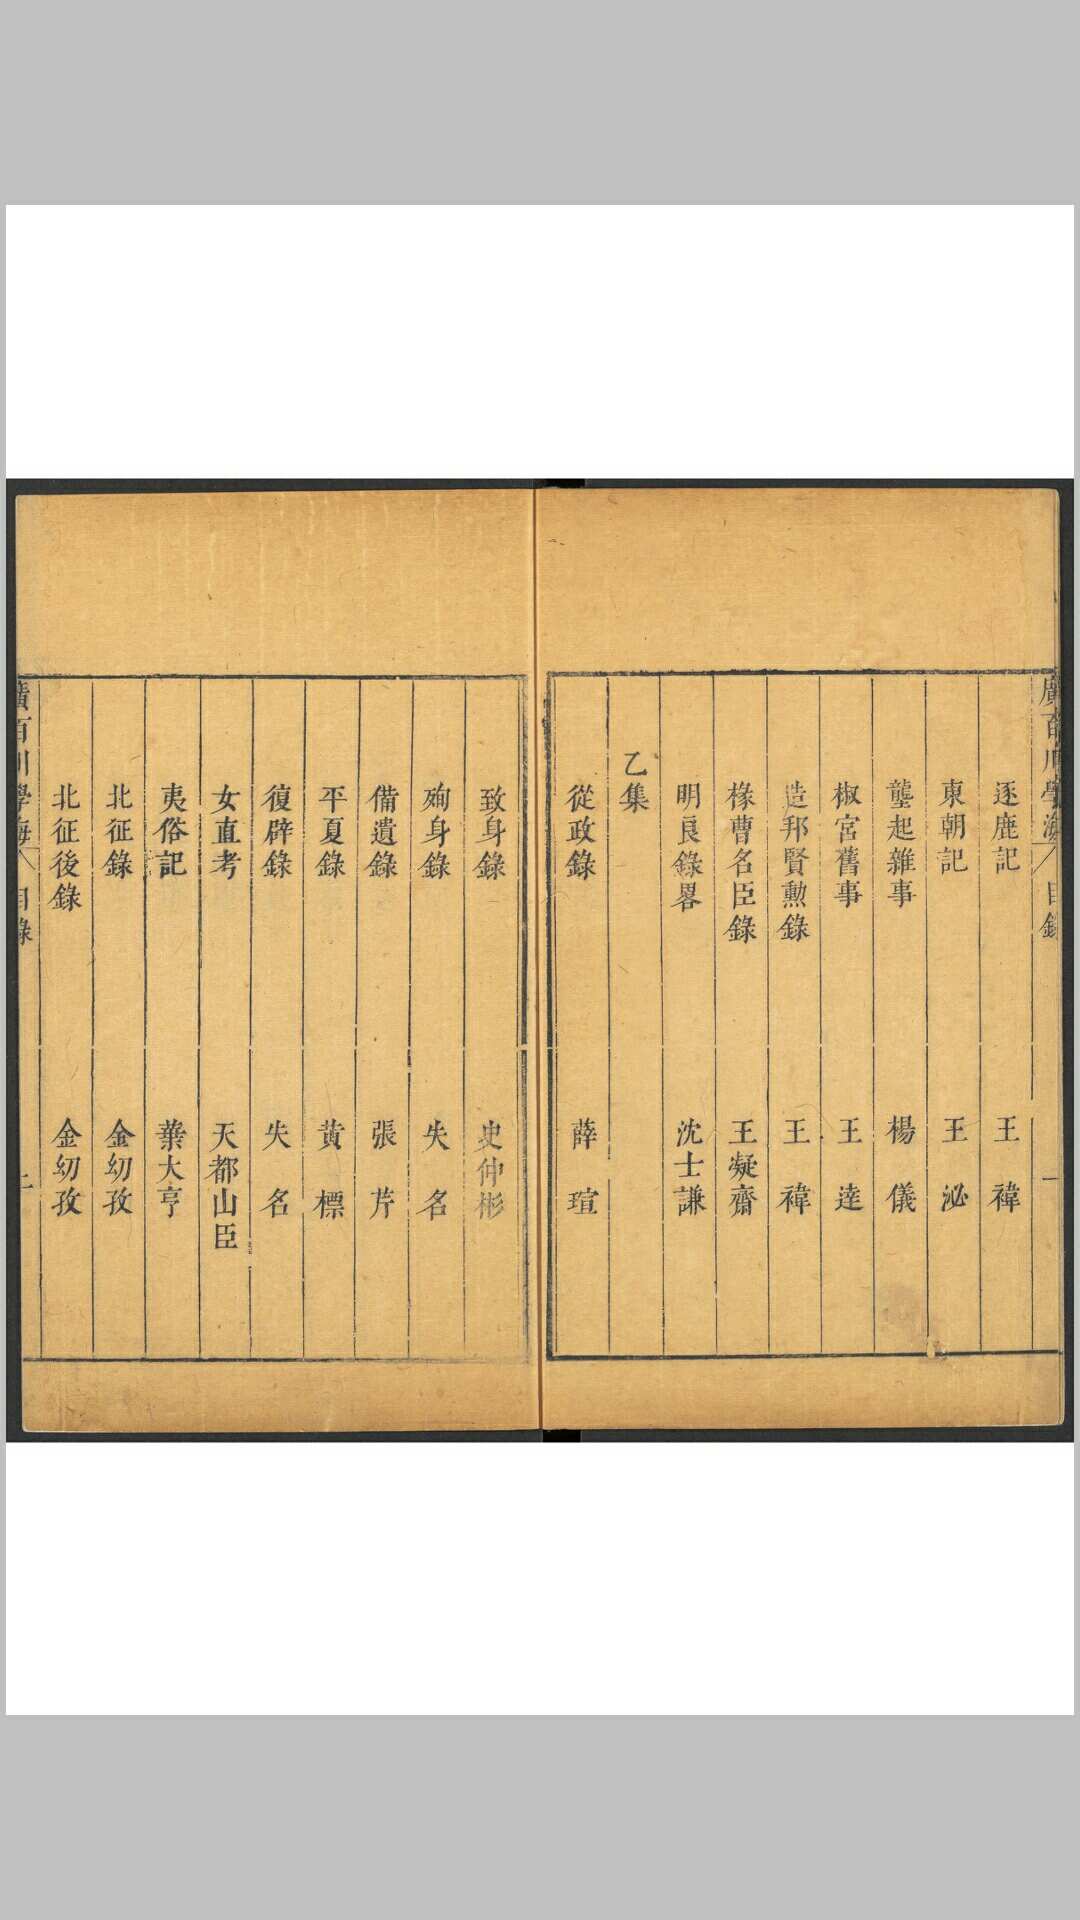 廣百川學海 目錄 一
逐鹿記 王褘
東朝記 王泌
壟起雜事 楊儀
椒宮舊事 王逹
造邦賢勲錄 王褘
掾曹名臣錄 王凝齋
明良錄畧 沈士謙
乙集
從政錄 薛瑄
致身錄 史仲彬
殉身錄 失名
備遺錄 張芹
平夏錄 黄標
復辟錄 失名
女直考 天都山臣
夷俗記 蕭大亨
北征錄 金幼孜
北征後錄 金幼孜
廣百川學海 目錄